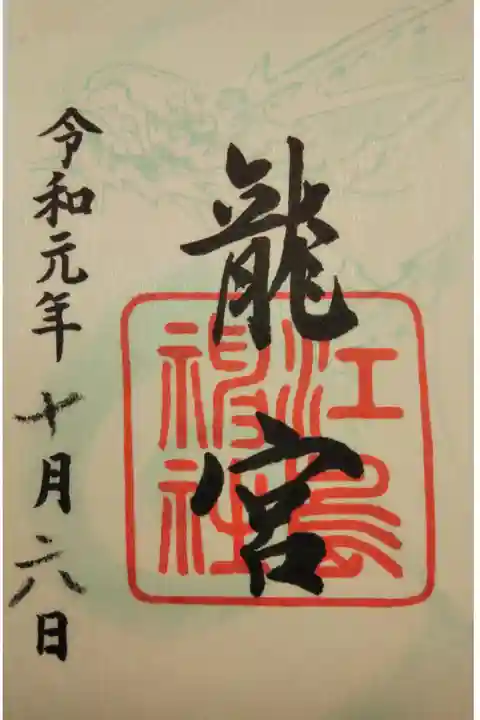 龍宮
江島神社
令和元年十月六日